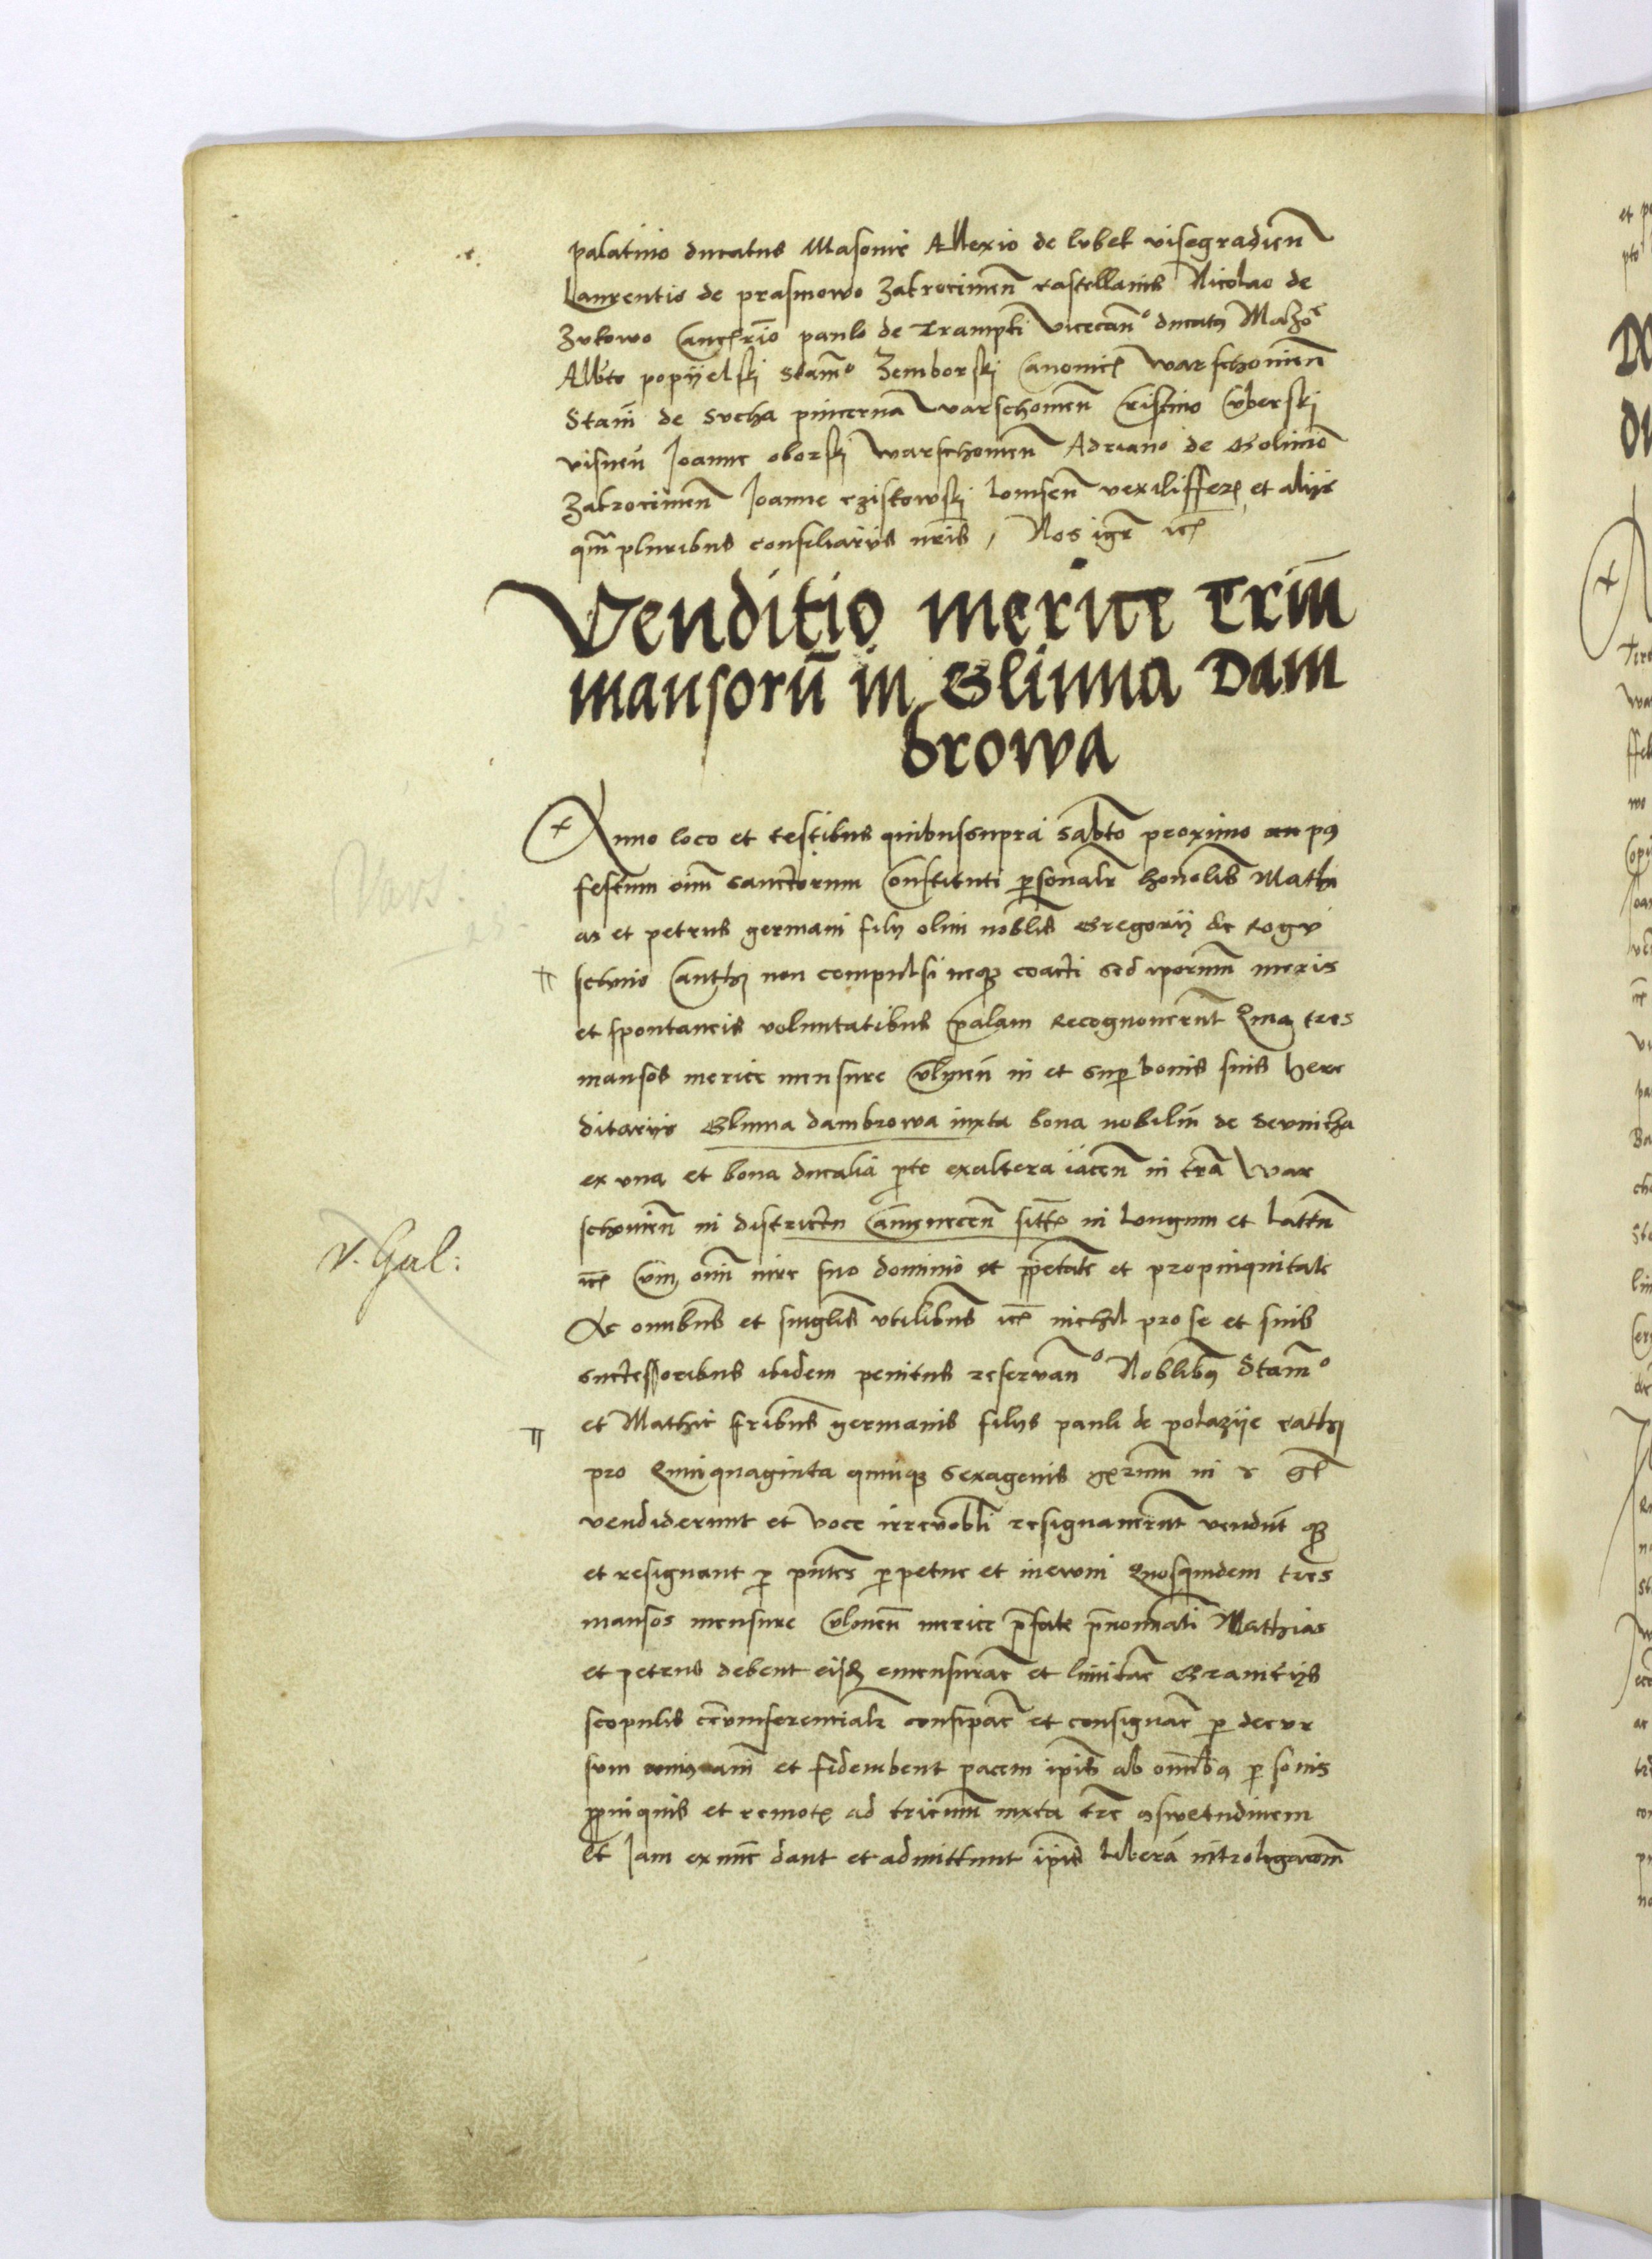 palatino ducatus Masovie Allexio de lubel visegradien
Laurentio de prasmowo Zakrocimen castellanis Nicolao de
Zukowo Cancrio paulo de Trampki Vicecano ducatus Mazo
Albto popyelski Stamo Zemborski Canonic Warschovien
Stani de Sucha pincerna Warschovien Cristino Cuberski
visnen Joanne oborski Warschovien Adriano de Golimo
Zakrocimen Joanne czistowski Lomsen vexilifferis et aliis
qm pluribus consiliariis nris, Nos igr etc
Venditio merice Trim
mansoru in Glinna Dam
browa
Anno loco et testibus quibussupra Sabto proximo pus
festum oim sanctorum Constituti personalr honolis Mathi
as et petrus germani filii olim noblis Gregorii de Rogu
schno Canthi non compulsi neque coacti sed iporum meris
et spontaneis voluntatibus palam Recognoverunt Quia tres
mansos merice mensure Culmen in et super bonis suis here
ditariis Glinna dambrowa iuxta bona nobiliu de Sevnicza
ex una et bona ducalia pte exaltera iacen in tra War
schovien in districtu Camenecen sitte in Longum et Lattu
etc Cum omi iure suo dominio et ppetate et propinquitate
v. Gal:
Ac omnibus et singlis utilibus etc nichil pro se et suis
successoribus ibidem penitus reservano Noblibus Stamo
et Mathie fribus germanis filiis pauli de polazije rathi
pro Quinquaginta quinque sexagenis grorum in
vendiderunt et voce irrevobli resignaverunt vendunt que
et resignant per pntes perpetue et inevum Quosquidem tres
mansos mensure Culmen merice pfate pnominati Mathias
et petrus debent eisdem emensurare et limitare Granitiis
scopulis Circumferentialr consipare et consignare per decur
sum et fideiubent pacem ipis ab omnibus personis
ppinquis et remotis ad tricenium iuxta tre consuetudinem
Et Jam exnunc dant et admittunt ipis Liberam introligacom